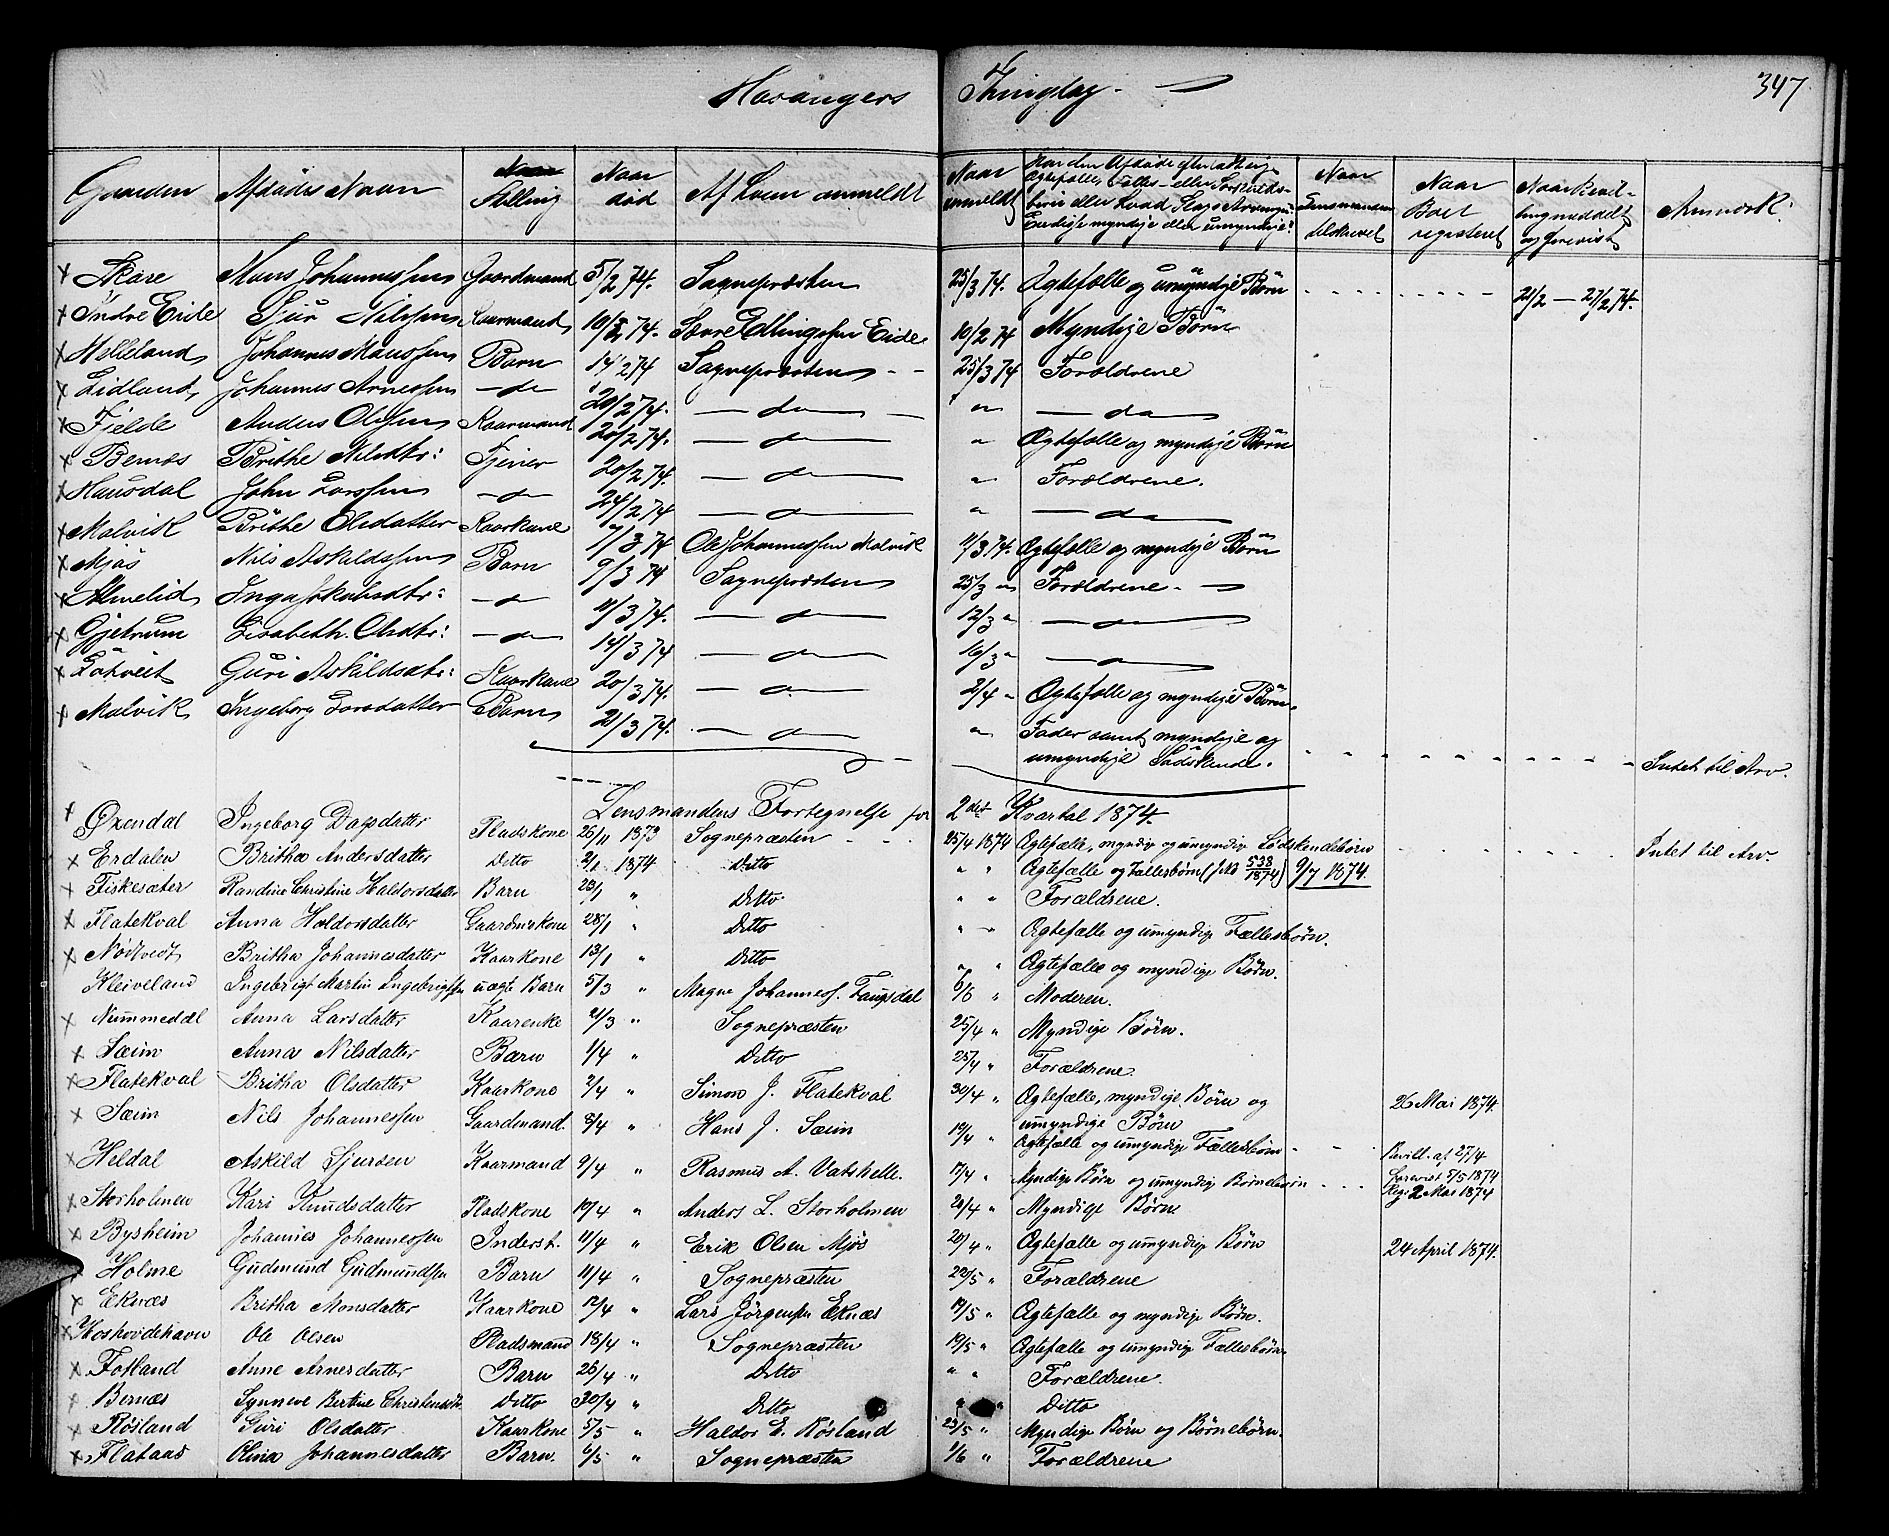 Hosangers Thinglag. 347
Gaarden | Afdødes Navn | Stilling | Naar død | Af hvem anmeldt | Naar anmeldt | Har den Afdøde efterladt sig Ægtefælle, Fælles- eller Særkulds- børn eller hvad Slags Arvinger. Er disse myndige eller umyndige? | Naar Lensmanden tilskrevet | Naar Boet registeret | Naar Bevil- ling meddelt og forevist | Anmærk:
x Skare | Mons Johannessen | Gaardmand | 5/2 74. | Sognepræsten | 25/3 74. | Ægtefælle og umyndige Børn | 21/2 — 27/2 74.
x Indre Eide | Sjur Nilssen | Kaarmand | 10/2 74. | Sævre Edlingssen Eide | 19/2 74 | Myndige Børn
x Helleland | Johannes Monssen | Barn | 14/2 74 | Sognepræsten | 25/3 74 | Forældrene
x Lidland | Johannes Arnessen | — do | 20/2 74. | — do — | " | — do —
x Fjelde | Anders Olssen | Kaarmand | 20/2 74. | — do — | " | Ægtefælle og myndige Børn
x Bernæs | Brithe Nilsdtr: | Tjener | 20/2 74. | — do — | " | Forældrene.
x Hausdal | John Larssen | — do | 24/2 74 | — do — | " | — do —
x Molvik | Brithe Olsdatter | Kaarkone | 7/3 74 | Ole Johannessen Molvik | 11/3 74. | Ægtefælle og myndige Børn
x Mjøs | Nils Askildssen | Barn | 9/3 74 | Sognepræsten | 25/3 " | Forældrene.
x Almelid | Inga Jakobsdtr: | — do | 11/3 74. | — do — | 12/3 " | — do —
x Gjetrum | Lisabeth. Olsdtr: | — do | 14/3 74 | — do — | 16/3 " | — do —
x Lötveit | Guri Askildsdtr: | Kaarkone | 20/3 74. | — do — | 2/4 " | Ægtefælle og myndige Børn.
x Molvik | Ingeborg Larsdatter | Barn | 21/3 74. | — do — | " | Fader samt myndige og
umyndige Södskende. | Intet til Arv.
Lensmandens Fortegnelse for 2det Kvartal 1874.
x Øxendal | Ingeborg Dagsdatter | Pladskone | 26/11 1873 | Sognepræsten | 25/4 1874 | Ægtefælle, myndig og umyndig Södskendebörn | Intet til Arv.
x Erdalen | Britha Andersdatter | Ditto | 2/1 1874 | Ditto | " " | Ægtefælle og Fællesbørn (J.N. 538/1874) | 9/7 1874.
x Fiskesæter | Randine Christine Haldorsdatter | Barn | 23/1 " | Ditto | " " | Forældrene.
x Flatekval | Anna Haldorsdatter | Gaardmskone | 28/1 " | Ditto | " " | Ægtefælle og umyndig Fællesbørn.
x Nøtvedt | Britha Johannesdatter | Kaarkone | 13/1 " | Ditto | " " | Ægtefælle og myndige Børn.
Kleiveland | Ingebrigt Martin Ingebrigtsen | uægte Barn | 5/3 " | Magne Johanness. Faugsdal | 6/6 " | Moderen.
x Nummedal | Anna Larsdatter | Kaarenke | 21/3 " | Sognepræsten | 25/4 " | Myndige Børn.
x Sæim | Anna Nilsdatter | Barn | 1/4 " | Ditto | 25/4 " | Forældrene.
x Flatekval | Britha Olsdatter | Kaarkone | 2/4 " | Simon J. Flatekval | 30/4 " | Ægtefælle, myndige Børn og umyndige Børn | 26 Mai 1874.
x Sæim | Nils Johannessen | Gaardmand. | 8/4 " | Hans J. Sæim | 19/4 " | Ægtefælle og umyndige Fællesbørn | Bevill. af 27/4 Forevist 5/5 1874
x Heldal | Askild Sjursen | Kaarmand | 9/4 " | Rasmus A. Vatshelle. | 17/4 " | Myndige Børn og umyndig Børnebørn | Reg: 2 Mai 1874
x Storholmen | Kari Knudsdatter | Pladskone | 10/4 " | Anders L. Storholmen | 20/4 " | Myndige Børn
x Bysheim | Johannes Johannessen | Inderst. | 11/4 " | Erik Olsen Mjøs | 20/4 " | Ægtefælle og umyndige Børn | 24 April 1874.
x Holme | Gudmund Gudmundsen | Barn | 11/4 " | Sognepræsten | 22/5 " | Forældrene
x Eknæs | Britha Monsdatter | Kaarkone | 12/4 " | Lars Jörgensen Eknæs | 19/5 " | Ægtefælle og myndige Børn.
x Hoshovdehavn | Ole Olsen | Pladsmand | 18/4 " | Sognepræsten | 19/5 " | Ægtefælle og umyndige Fællesbørn
x Fotland | Anne Arnesdatter | Barn | 26/4 " | Ditto | " " | Forældrene.
x Bernæs | Synneve Bertine Christensdtr | Ditto | 30/4 " | Ditto | " " | Ditto
x Røsland | Guri Olsdatter | Kaarkone | 5/5 " | Haldor E. Røsland | 23/5 " | Myndige Børn og Børnebørn.
x Flataas | Olina Johannesdatter | Barn. | 6/5 " | Sognepræsten | 1/6 " | Forældrene